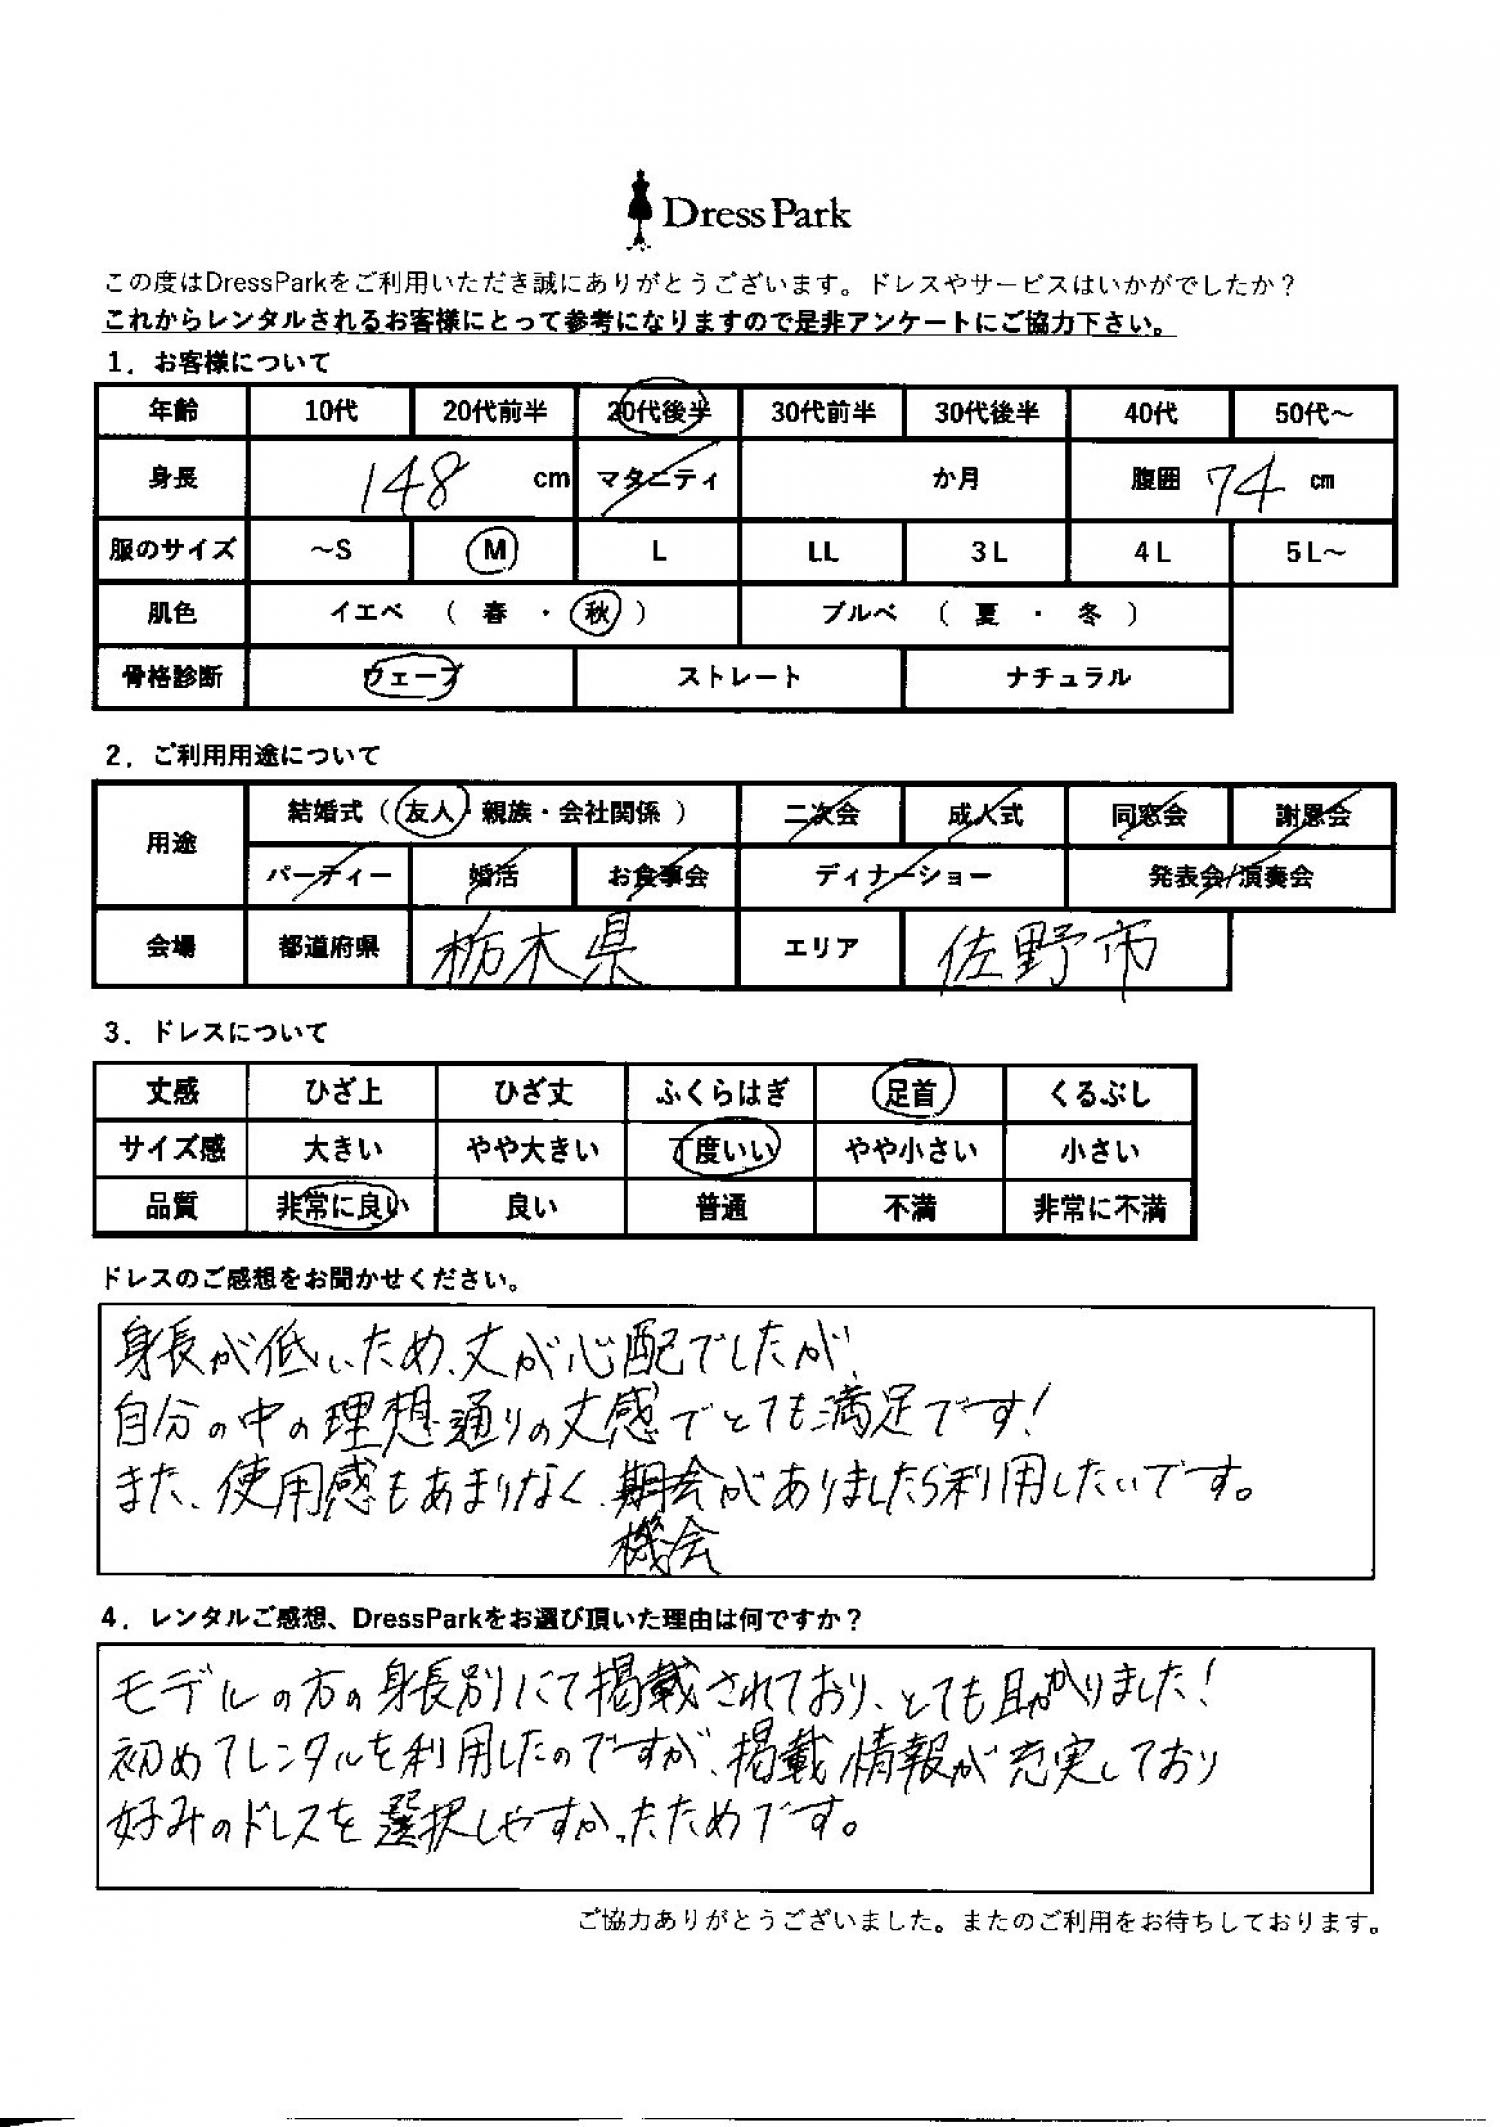 Dress Park
この度はDressParkをご利用いただき誠にありがとうございます。ドレスやサービスはいかがでしたか？
これからレンタルされるお客様にとって参考になりますので是非アンケートにご協力下さい。
1．お客様について
年齢 10代 20代前半 20代後半 30代前半 30代後半 40代 50代～
身長 148 cm マタニティ か月 腹囲 74 cm
服のサイズ ～S M L LL 3L 4L 5L～
肌色 イエベ （ 春 ・ 秋 ） ブルベ （ 夏 ・ 冬 ）
骨格診断 ウェーブ ストレート ナチュラル
2．ご利用用途について
用途 結婚式（ 友人・親族・会社関係 ） 二次会 成人式 同窓会 謝恩会
パーティー 婚活 お食事会 ディナーショー 発表会/演奏会
会場 都道府県 栃木県 エリア 佐野市
3．ドレスについて
丈感 ひざ上 ひざ丈 ふくらはぎ 足首 くるぶし
サイズ感 大きい やや大きい 丁度いい やや小さい 小さい
品質 非常に良い 良い 普通 不満 非常に不満
ドレスのご感想をお聞かせください。
身長が低いため、丈が心配でしたが、
自分の中の理想通りの丈感でとても満足です！
また、使用感もあまりなく、期会がありましたら利用したいです。
機会
4．レンタルご感想、DressParkをお選び頂いた理由は何ですか？
モデルの方の身長別にて掲載されており、とても助かりました！
初めてレンタルを利用したのですが、掲載情報が充実しており
好みのドレスを選択しやすかったためです。
ご協力ありがとうございました。またのご利用をお待ちしております。